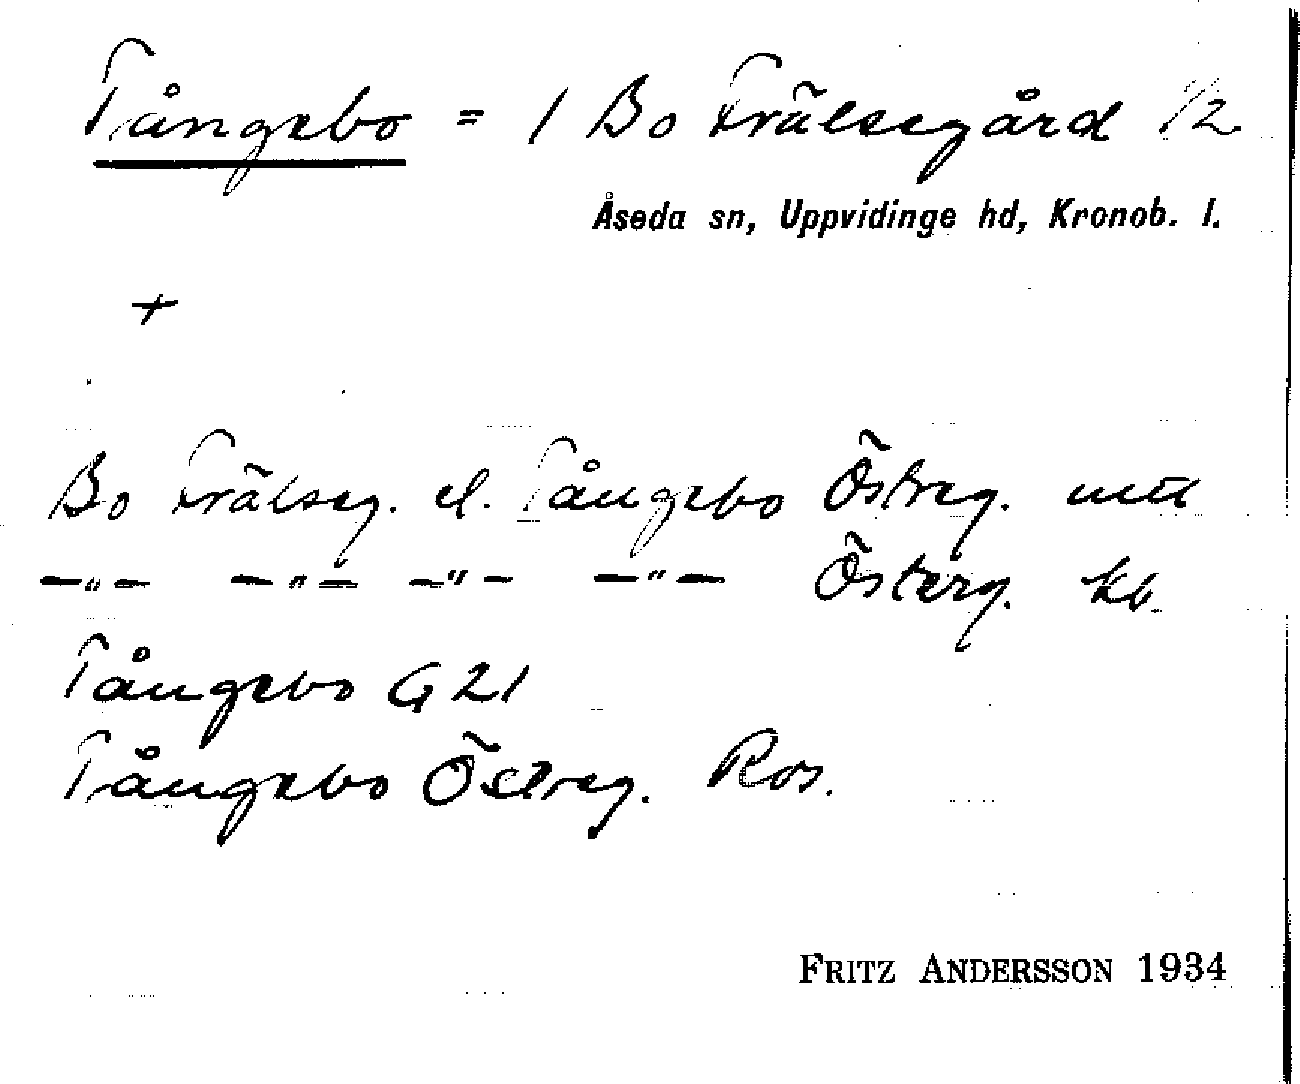 Tångebo = 1 Bo Frälsegård 1/2
Åseda sn, Uppvidinge hd, Kronob. l.
+
Bo Frälseg. el. Tångebo Östreg. mtl
—"— —"— —"— —"— Österg. kb.
Tångebo G 21
Tångebo Östreg. Ros.
FRITZ ANDERSSON 1934